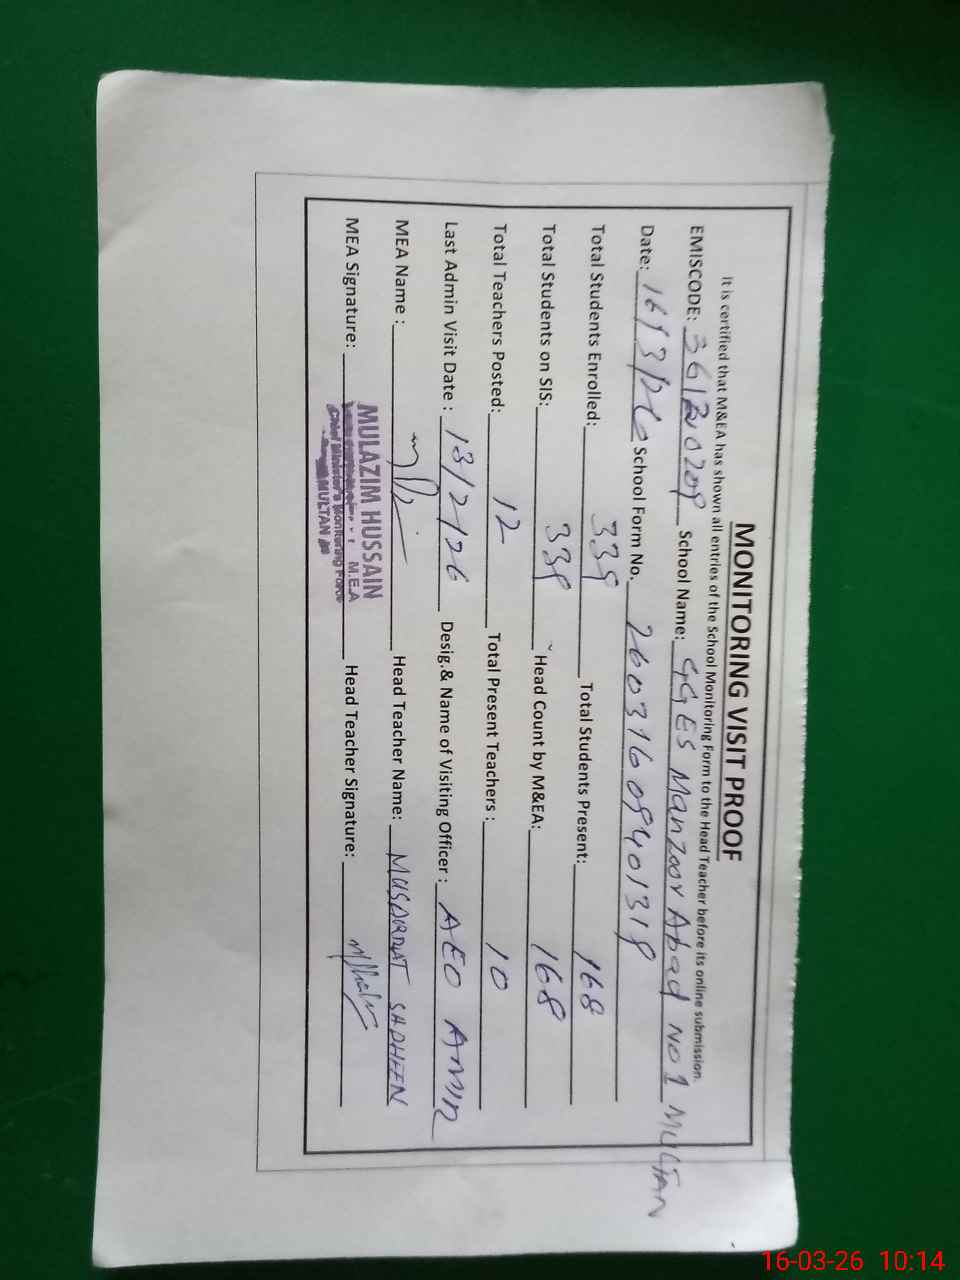 MONITORING VISIT PROOF
It is certified that M&EA has shown all entries of the School Monitoring Form to the Head Teacher before its online submission.
EMISCODE: School Name: GGES Manzoor Abad No 1 MULTAN
Date: 16/3/26 School Form No. 2603160940131
Total Students Enrolled: 339 Total Students Present: 168
Total Students on SIS: 339 Head Count by M&EA: 168
Total Teachers Posted: 12 Total Present Teachers : 10
Last Admin Visit Date : 13/2/26 Desig.& Name of Visiting Officer : AEO AMIR
MEA Name : Head Teacher Name: MUSARRAT SHAHEEN
MEA Signature: Head Teacher Signature:
MULAZIM HUSSAIN
M.E.A
Chief Minister's Monitoring Force
MULTAN
16-03-26 10:14